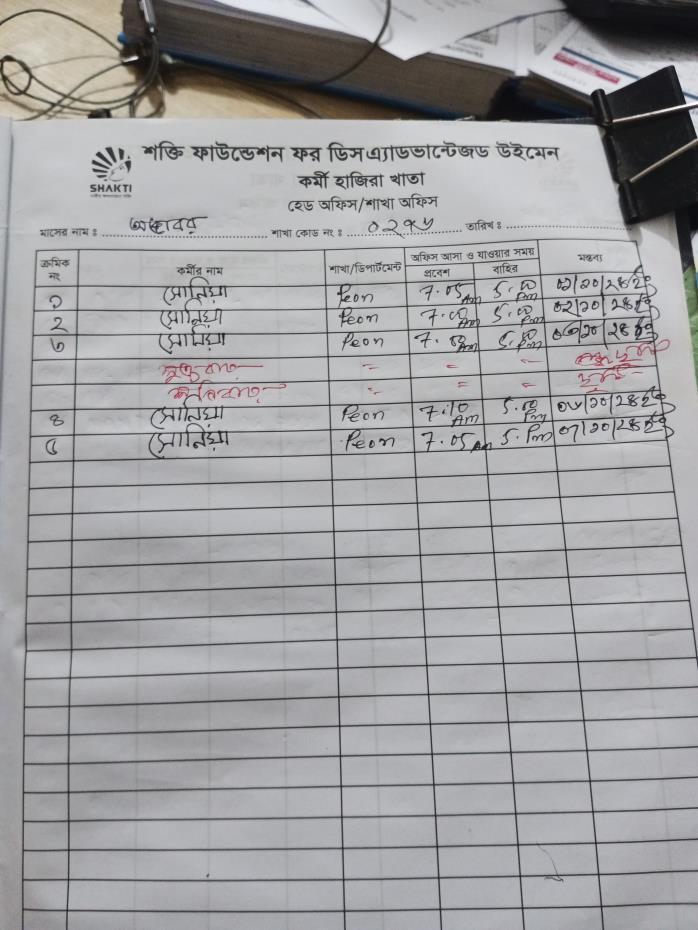 শক্তি ফাউন্ডেশন ফর ডিসএ্যাডভান্টেজড উইমেন
SHAKTI
কর্মী হাজিরা খাতা
হেড অফিস/শাখা অফিস
মাসের নাম ঃ অক্টোবর শাখা কোড নং ঃ ০২৭৮ তারিখ ঃ
ক্রমিক নং কর্মীর নাম শাখা/ডিপার্টমেন্ট অফিস আসা ও যাওয়ার সময় মন্তব্য
প্রবেশ বাহির
১ সোনিয়া Peon 7.05 Am 5.00 Pm ০১/১০/২৪ইং
২ সোনিয়া Peon 7.00 Am 5.00 Pm ০২/১০/২৪ইং
৩ সোনিয়া Peon 7.03 Am 5.00 Pm ০৩/১০/২৪ইং
শুক্রবার = = =
শনিবার = = = ছুটি
৪ সোনিয়া Peon 7.10 Am 5.00 Pm ০৬/১০/২৪ইং
৫ সোনিয়া Peon 7.05 Am 5. Pm ০৭/১০/২৪ইং